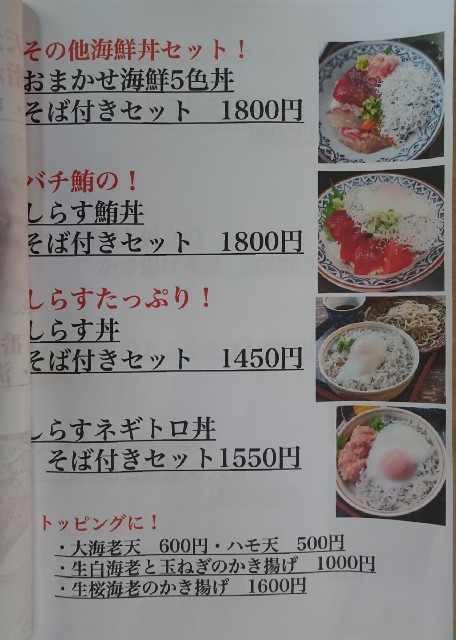 その他海鮮丼セット！
おまかせ海鮮5色丼
そば付きセット　1800円
バチ鮪の！
しらす鮪丼
そば付きセット　1800円
しらすたっぷり！
しらす丼
そば付きセット　1450円
しらすネギトロ丼
そば付きセット1550円
トッピングに！
・大海老天　600円・ハモ天　500円
・生白海老と玉ねぎのかき揚げ　1000円
・生桜海老のかき揚げ　1600円